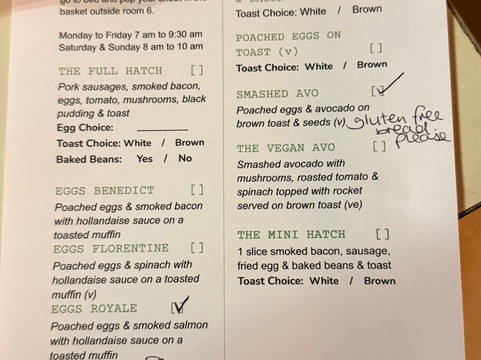 basket outside room 6.
Monday to Friday 7 am to 9:30 am
Saturday & Sunday 8 am to 10 am
THE FULL HATCH [ ]
Pork sausages, smoked bacon,
eggs, tomato, mushrooms, black
pudding & toast
Egg Choice: __________
Toast Choice: White / Brown
Baked Beans: Yes / No
EGGS BENEDICT [ ]
Poached eggs & smoked bacon
with hollandaise sauce on a
toasted muffin
EGGS FLORENTINE [ ]
Poached eggs & spinach with
hollandaise sauce on a toasted
muffin (v)
EGGS ROYALE [✓]
Poached eggs & smoked salmon
with hollandaise sauce on a
toasted muffin
& BACON
Toast Choice: White / Brown
POACHED EGGS ON
TOAST (v) [ ]
Toast Choice: White / Brown
SMASHED AVO [✓]
Poached eggs & avocado on
brown toast & seeds (v)
gluten free
bread
please
THE VEGAN AVO [ ]
Smashed avocado with
mushrooms, roasted tomato &
spinach topped with rocket
served on brown toast (ve)
THE MINI HATCH [ ]
1 slice smoked bacon, sausage,
fried egg & baked beans & toast
Toast Choice: White / Brown